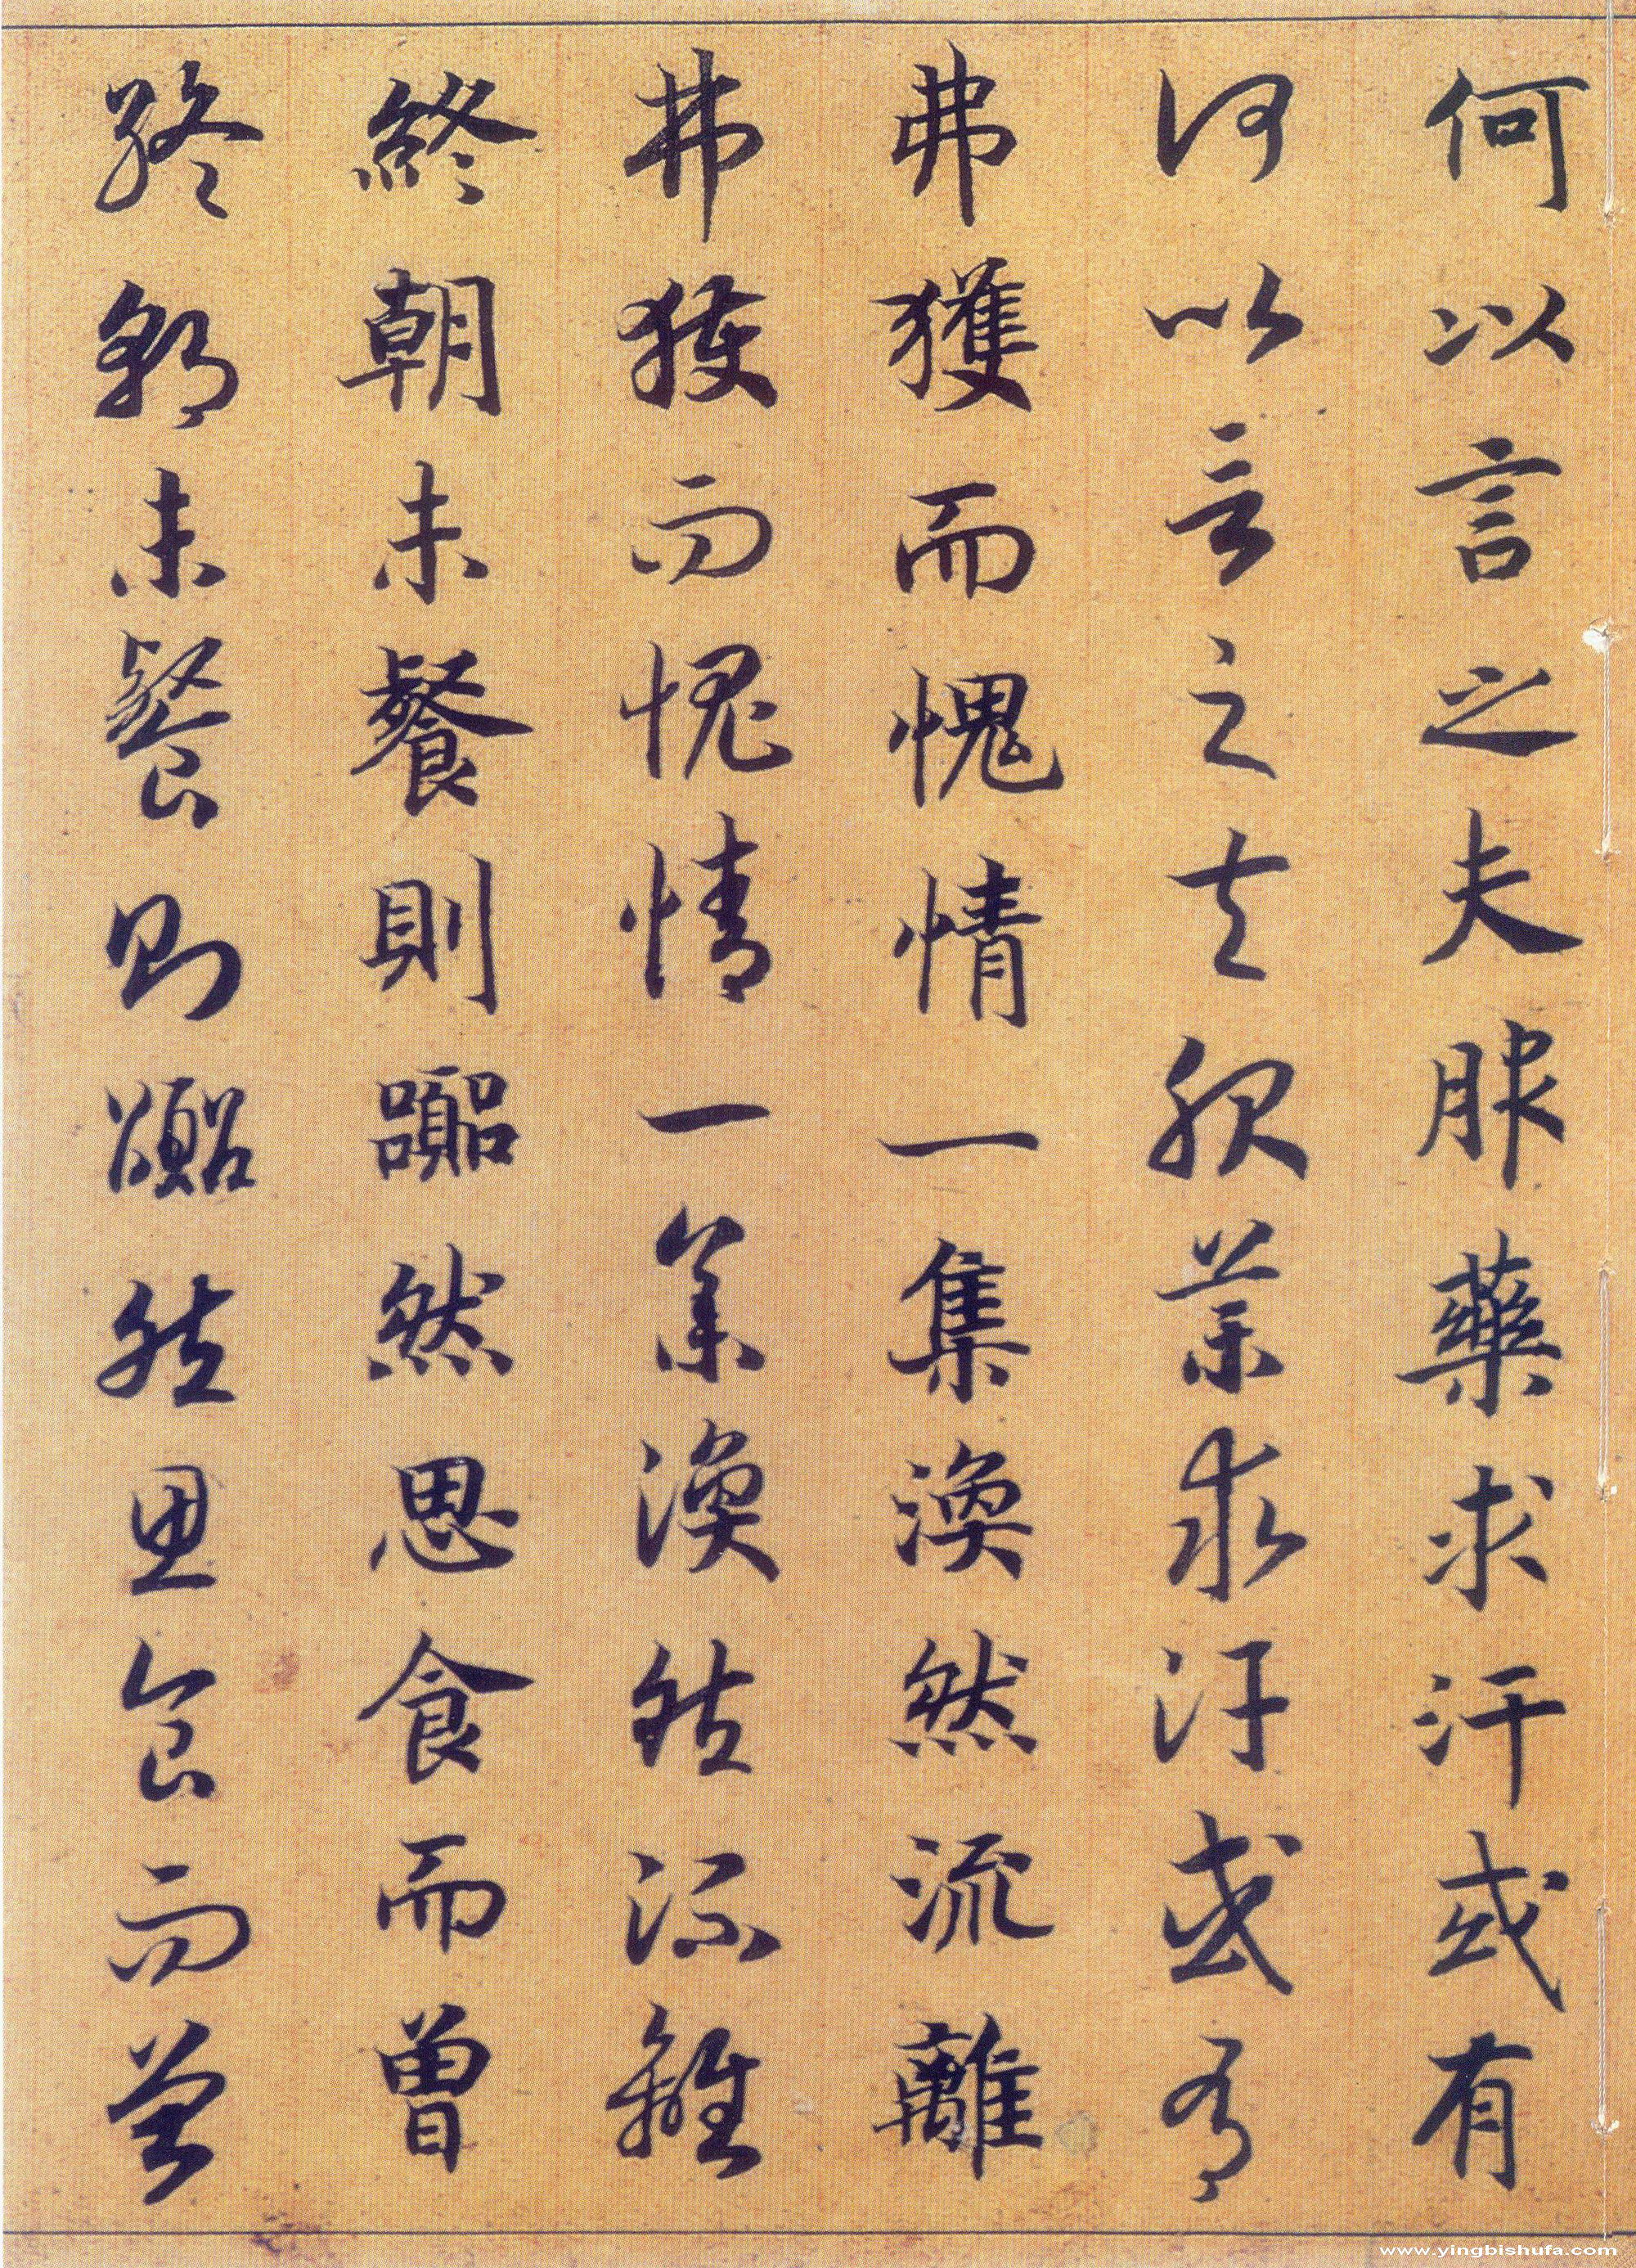 何以言之夫服藥求汗或有
何以言之夫服藥求汗或有
弗獲而愧情一集渙然流離
弗獲而愧情一集渙然流離
終朝未餐則嚻然思食而曾
終朝未餐則嚻然思食而曾
www.yingbishufa.com